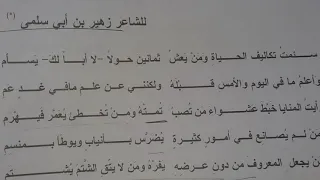 للشاعر زهير بن أبي سلمى (*)
سئمت تكاليف الحياة ومَنْ يَعِشْ ثمانين حولاً - لا أباً لك - يَسأم
وأعلمُ ما في اليوم والأمس قبْلَهُ ولكنني عن علم مافي غدٍ عم
رأيت المنايا خبْط عشواء من تُصبْ تُمتْهُ ومن تُخطئ يُعمّر فيهْرم
ومن لم يُصانع في أمورٍ كثيرةٍ يُضرّس بأنيابٍ ويوطأ بمنسم
ومن يجعل المعروف من دون عرضه يفرْهُ ومن لا يتّق الشّتم يُشتم